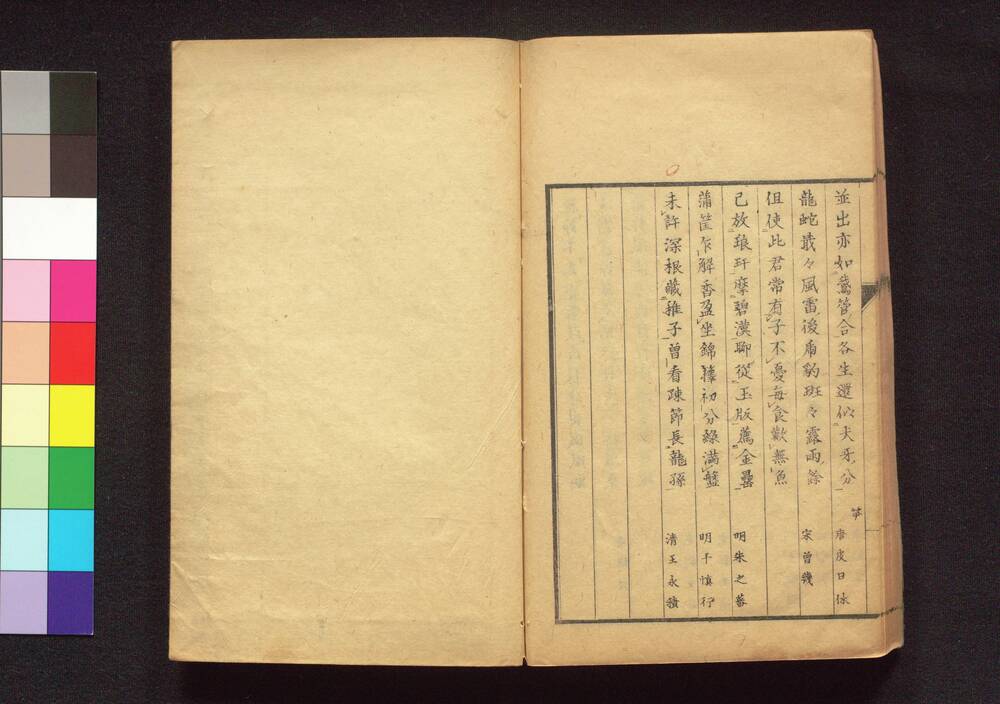 並出亦如鵞管合各生還似犬牙分 笋 唐皮日休
龍蛇戢々風雷後虎豹斑々露雨餘 宋曾幾
但使此君常有子不憂每食歎無魚
已放琅玕摩碧漢聊從玉版薦金罍 明朱之蕃
蒲筐乍解香盈坐錦籜初分綠滿盤 明于慎行
未許深根藏稚子曾看疎節長龍孫 清王永積